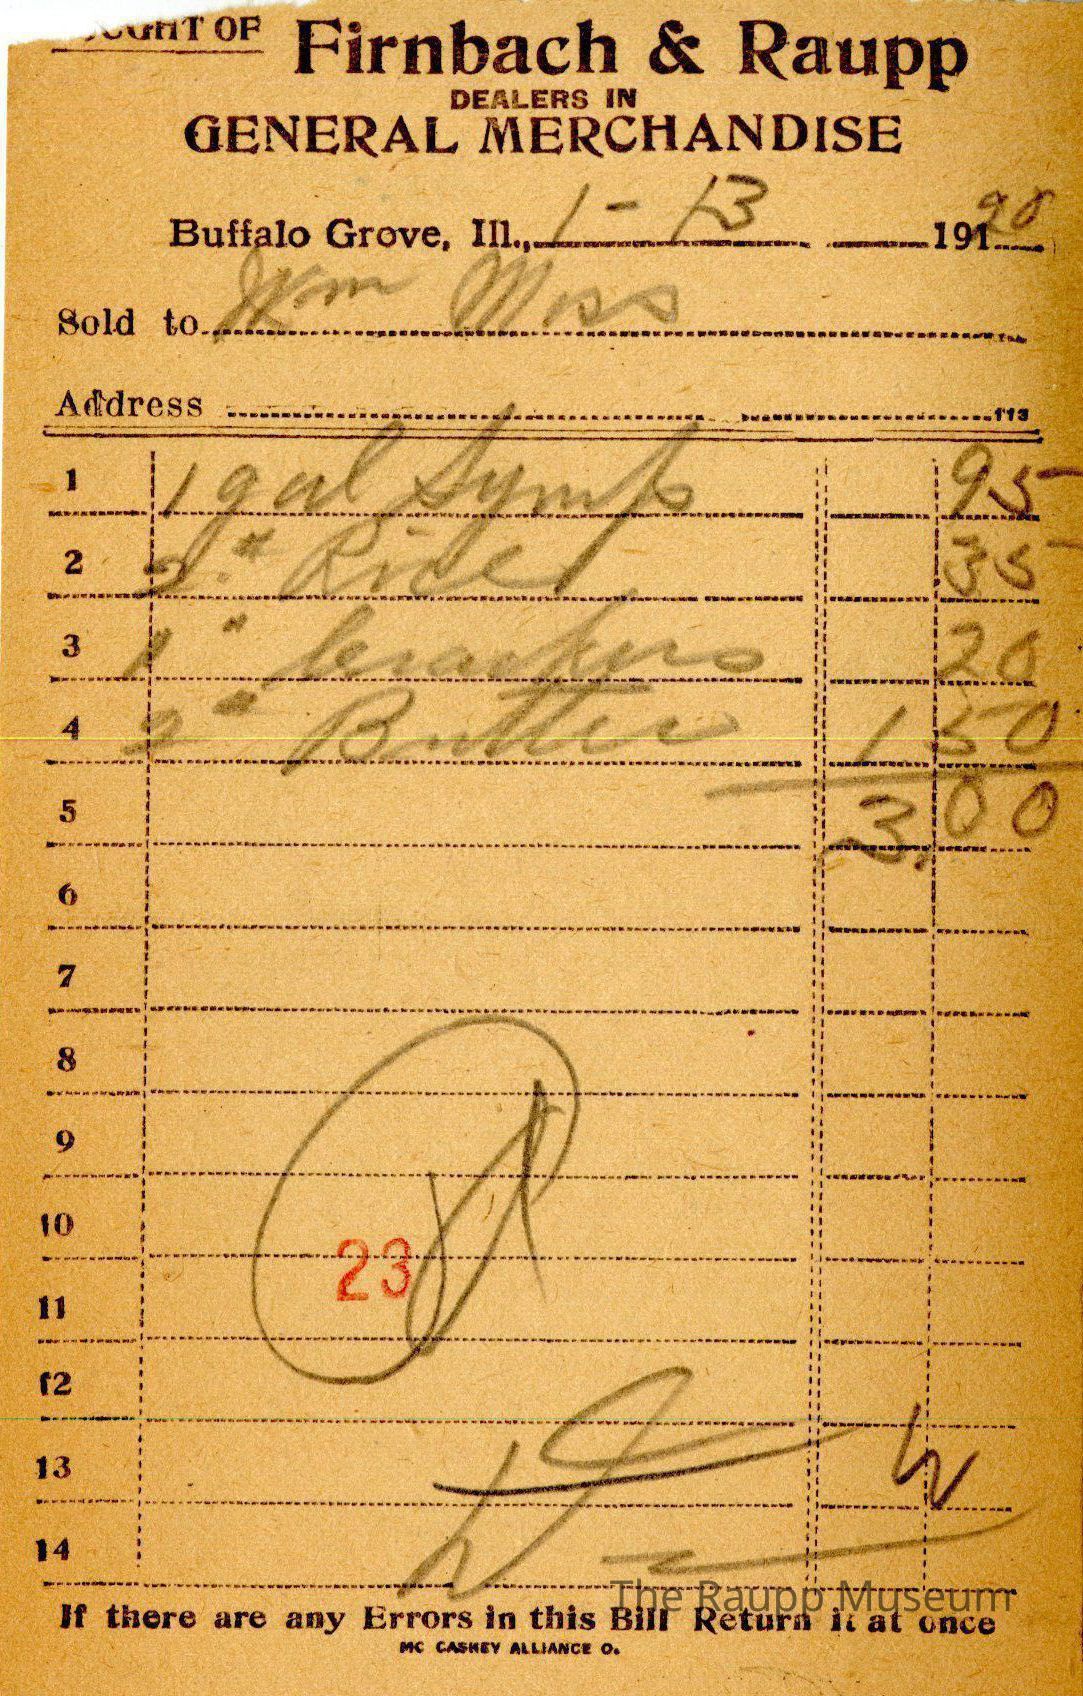 OUGHT OF Firnbach & Raupp
DEALERS IN
GENERAL MERCHANDISE
Buffalo Grove, Ill., 1-13 191 20
Sold to Wm Moss
Address 113
1 1 gal Syrup 95
2 2 # Rice 35
3 1 " Crackers 20
4 2 " Butter 1 50
5 3.00
6
7
8
9
10
23
11
12
13
14
The Raupp Museum
If there are any Errors in this Bill Return it at once
MC CASKEY ALLIANCE O.